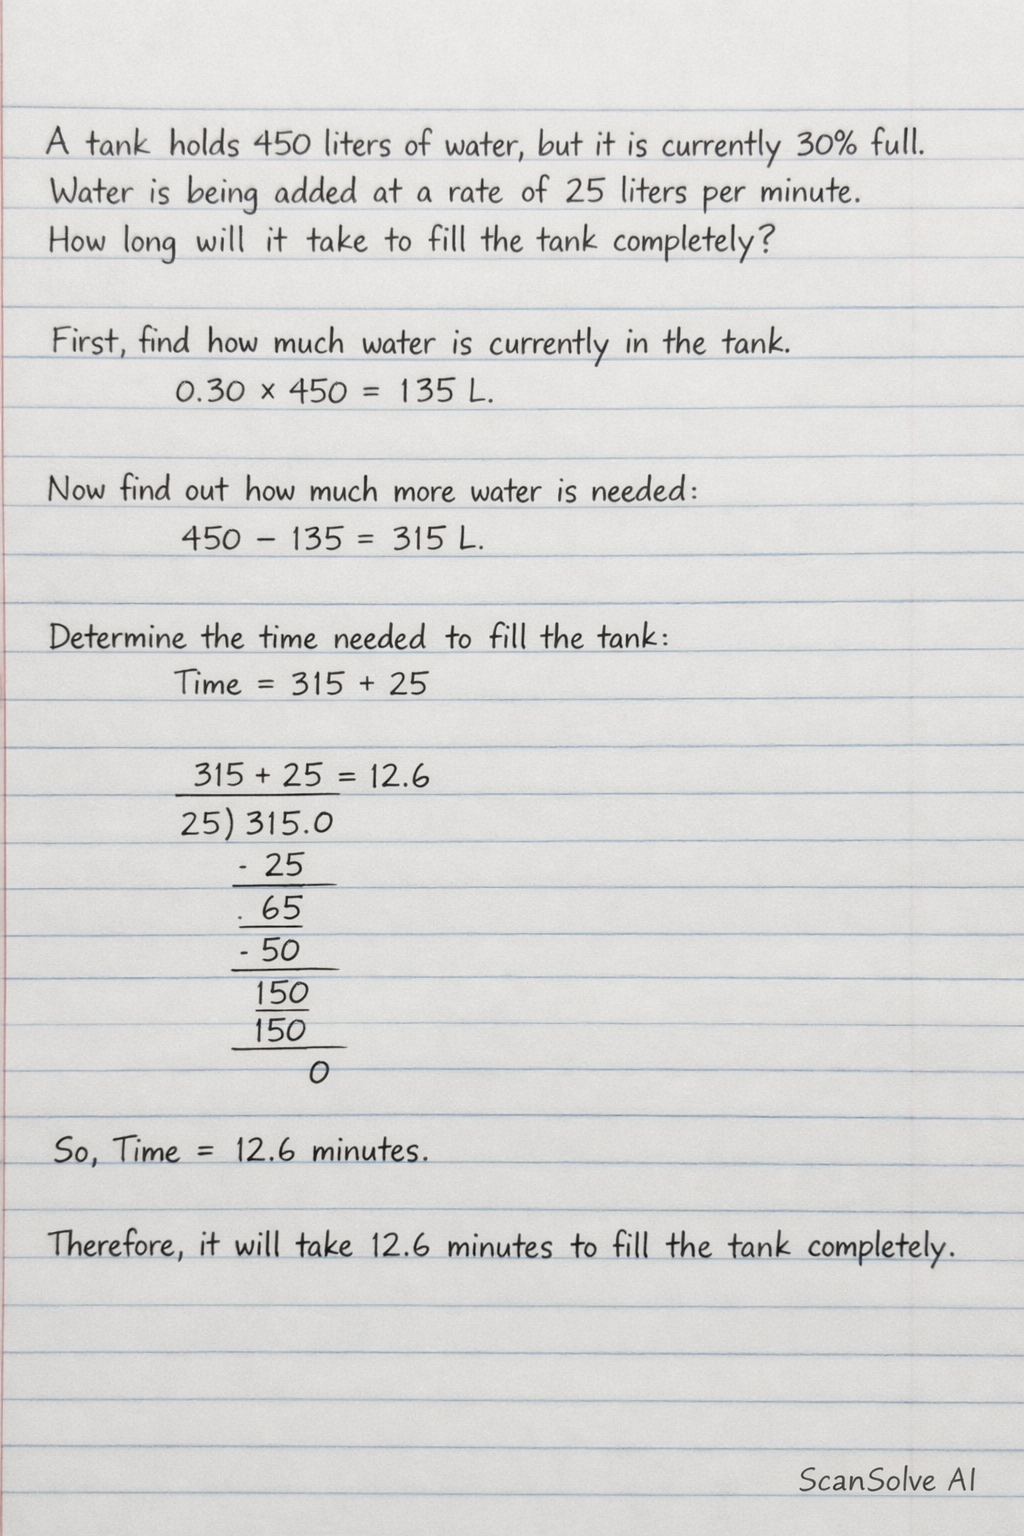 A tank holds 450 liters of water, but it is currently 30% full.
Water is being added at a rate of 25 liters per minute.
How long will it take to fill the tank completely?
First, find how much water is currently in the tank.
0.30 × 450 = 135 L.
Now find out how much more water is needed:
450 – 135 = 315 L.
Determine the time needed to fill the tank:
Time = 315 + 25
315 + 25 = 12.6
25) 315.0
- 25
. 65
- 50
150
150
0
So, Time = 12.6 minutes.
Therefore, it will take 12.6 minutes to fill the tank completely.
ScanSolve AI